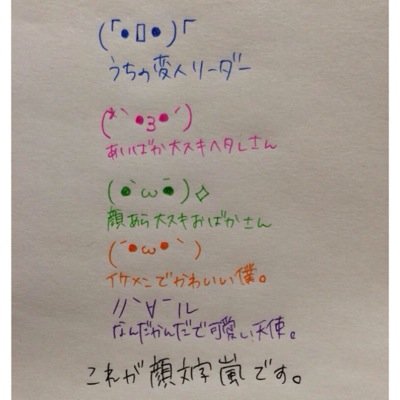 (｢●▯●)｢
うちの変人リーダー
(*｀●3●´)
あいばか大スキヘタレさん
(●｀ω´●)✧
顔あら大スキおばかさん
(´●ω●｀)
イケメンでかわいい僕。
//｀∀´ル
なんだかんだで可愛い天使。
これが顔文字嵐です。